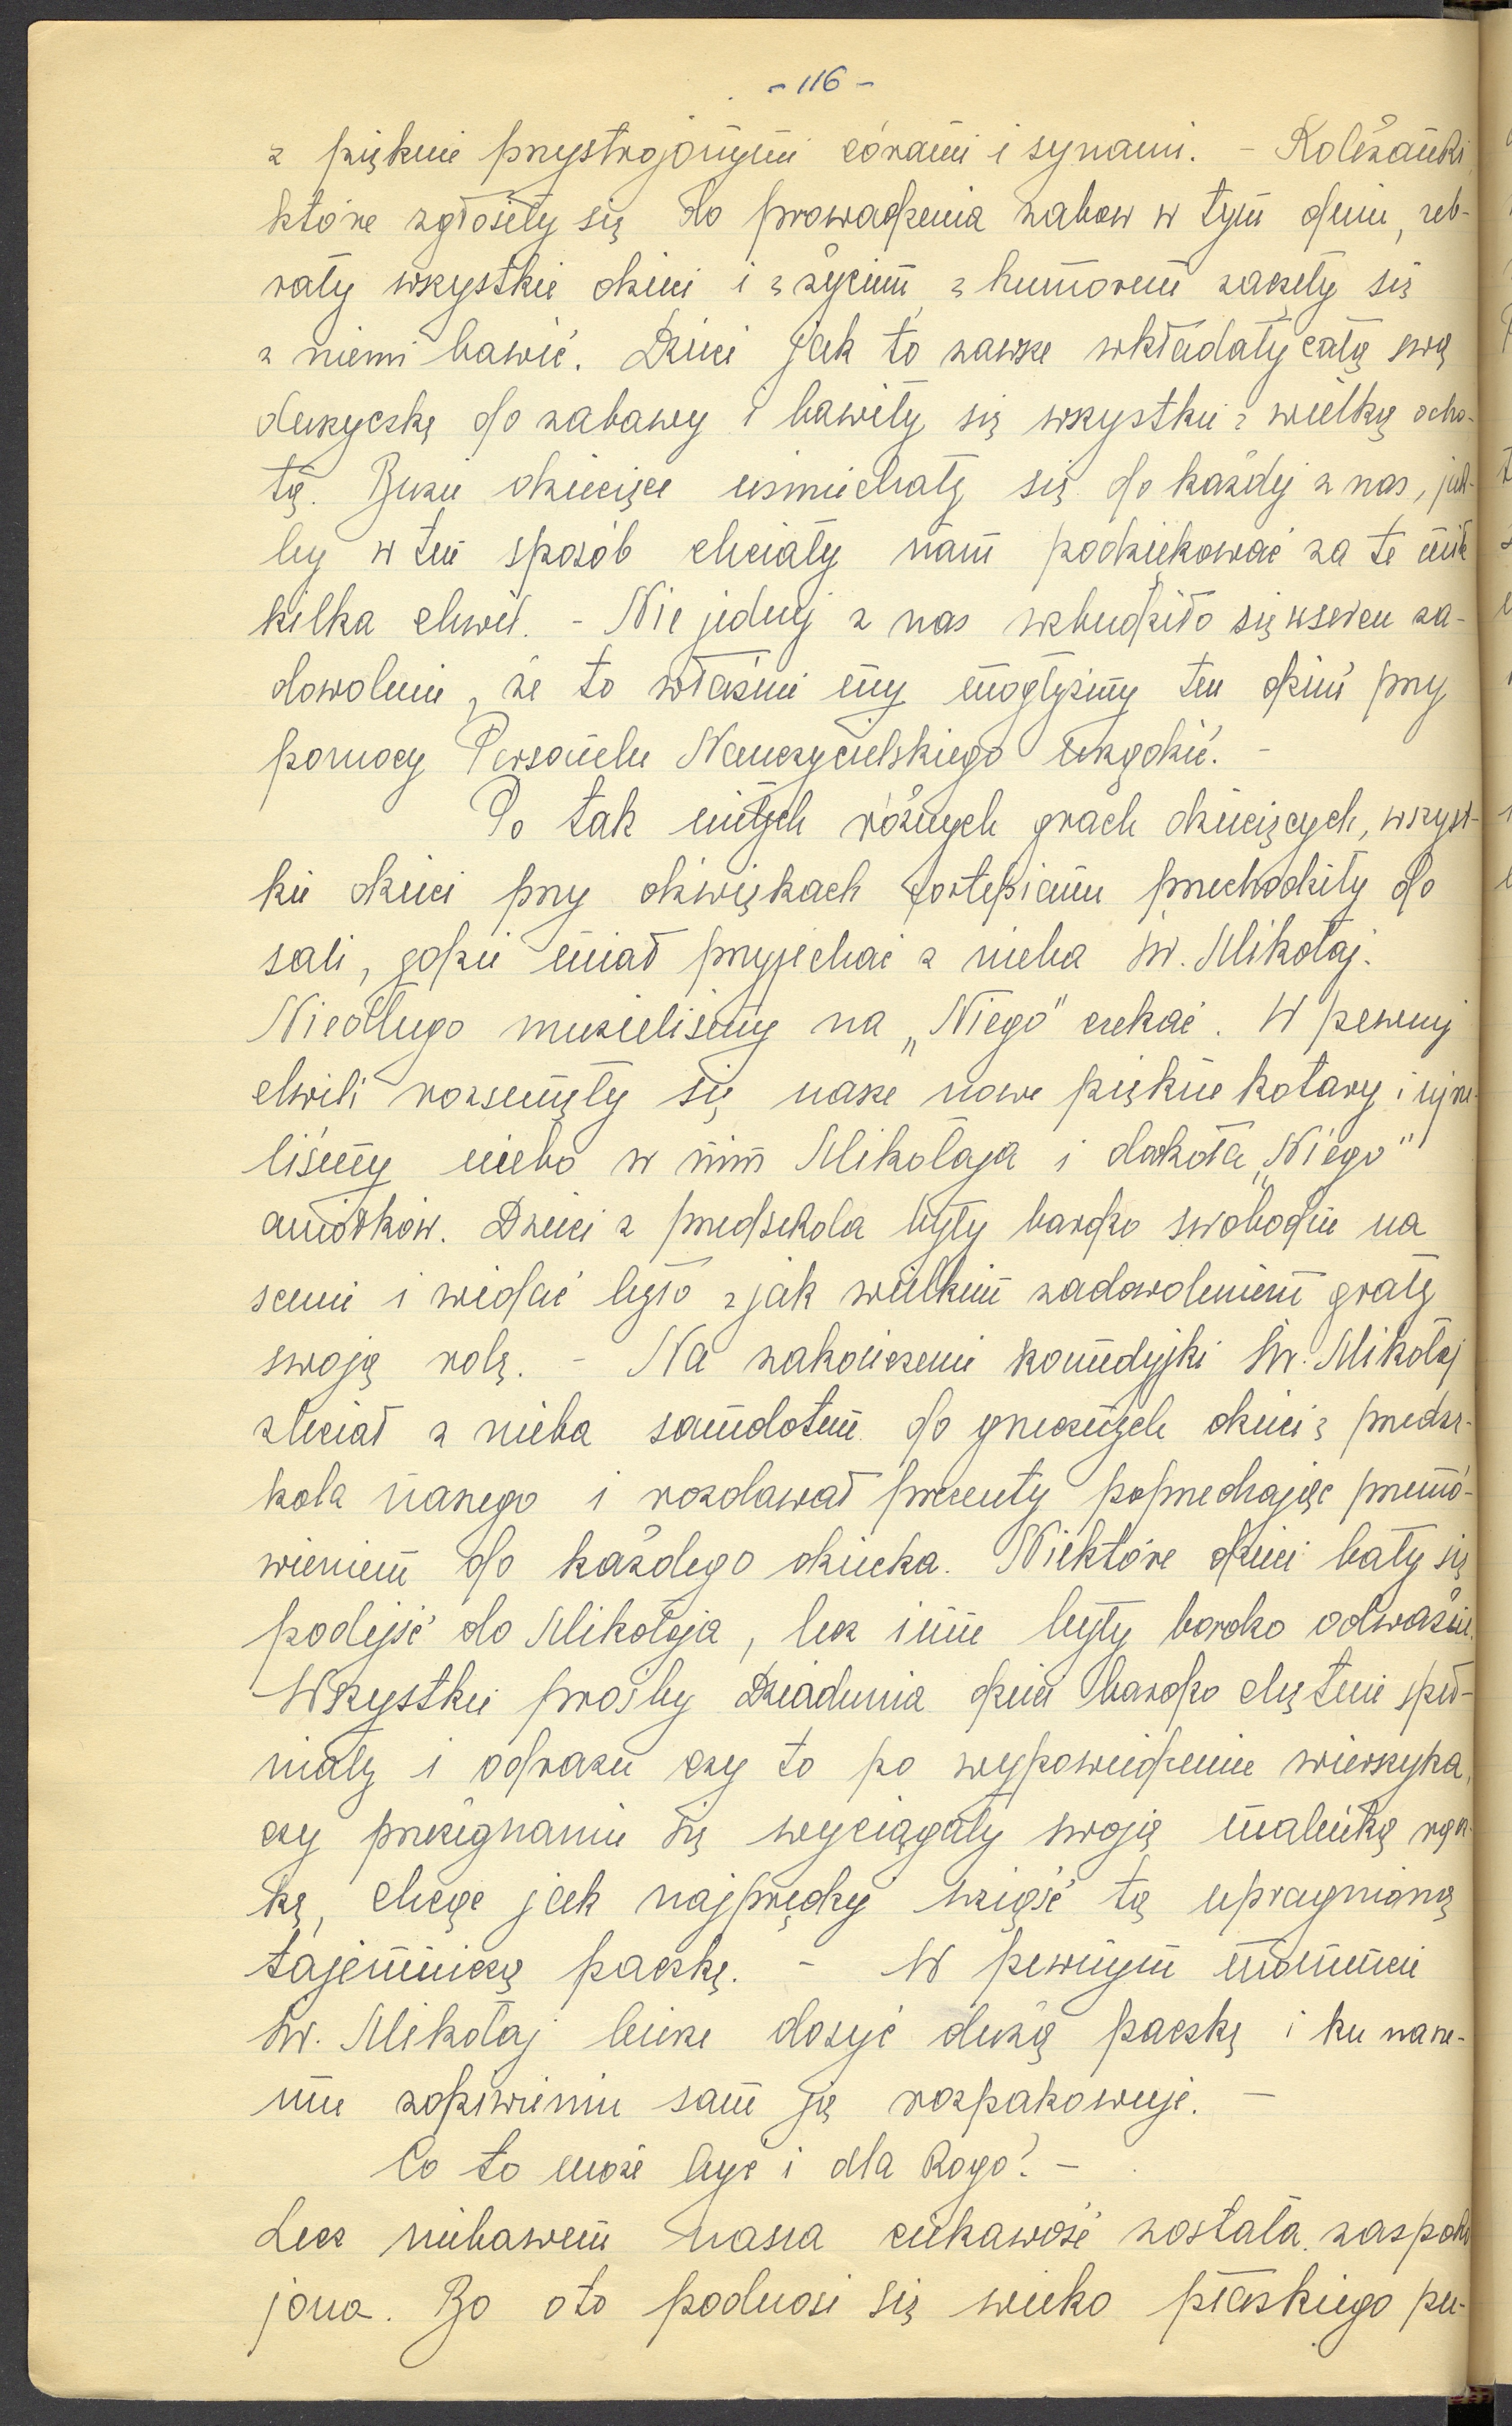 - 116 -
z pięknie przystrojonymi córami i synami. - Koleżanki
które zgłosiły się do prowadzenia zabaw w tym dniu, zeb-
rały wszystkie dzieci i z życiem, z humorem zaczęły się
z niemi bawić. Dzieci jak to zawsze wkładały całą swą
duszyczkę do zabawy i bawiły się wszystkie z wielką ocho-
tą. Buzie dziecięce uśmiechały się do każdej z nas, jak-
by w ten sposób chciały nam podziękować za te miłe
kilka chwil. - Nie jednej z nas wzbudziło się w sercu za-
dowolenie, że to właśnie my mogłyśmy ten dzień przy
pomocy Personelu Nauczycielskiego urządzić. -
Po tak miłych różnych grach dziecięcych, wszyst-
kie dzieci przy dźwiękach fortepianu przechodziły do
sali, gdzie miał przyjechać z nieba św. Mikołaj.
Niedługo musieliśmy na „Niego" czekać. W pewnej
chwili rozsunęły się nasze nowe piękne kotary i ujrze-
liśmy niebo w nim Mikołaja i dookoła „Niego"
aniołków. Dzieci z przedszkola były bardzo swobodne na
scenie i widać było z jak wielkim zadowoleniem grały
swoją rolę. - Na zakończenie komedyjki św. Mikołaj
zleciał z nieba samolotem do grzecznych dzieci z przedsz-
kola naszego i rozdawał prezenty poprzedzając przemó-
wieniem do każdego dziecka. Niektóre dzieci bały się
podejść do Mikołaja, lecz inne były bardzo odważne.
Wszystkie prośby Dziadunia dzieci bardzo chętnie speł-
niały i odrazu czy to po wypowiedzeniu wierszyka,
czy przeżegnaniu się wyciągały swoją maleńką rącz-
kę, chcąc jak najprędzej wziąść tą upragnioną
tajemniczą paczkę. - W pewnym momencie
św. Mikołaj bierze dosyć dużą paczkę i ku nasze-
mu zdziwieniu sam ją rozpakowuje. -
Co to może być i dla kogo? -
Lecz niebawem nasza ciekawość została zaspoko
jona. Bo oto podnosi się wieko płaskiego pu-